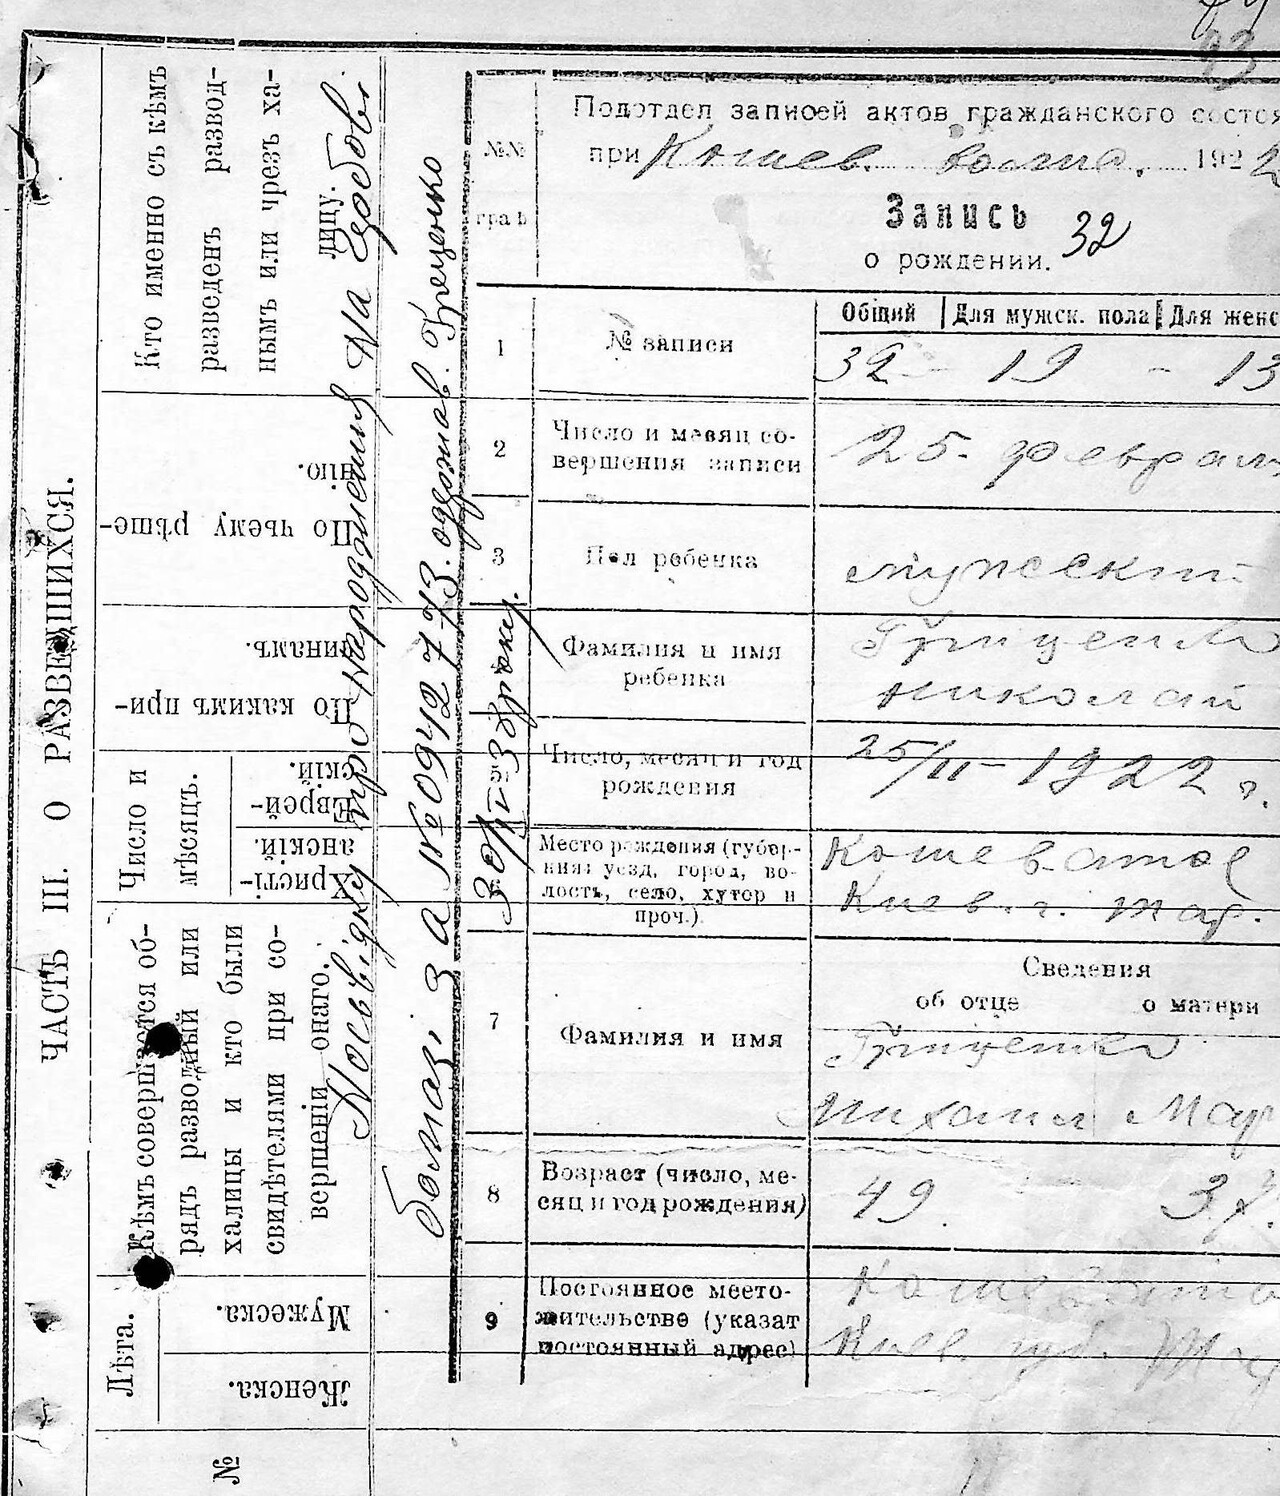 ЧАСТЬ III. О РАЗВЕДШИХСЯ.
Кто именно съ кѣмъ
разведенъ развод-
нымъ или чрезъ ха-
лицу.
По чьему рѣше-
нію.
По какимъ при-
чинамъ.
Число и
мѣсяцъ.
Еврей-
скій.
Христі-
анскій.
Кѣмъ совершается об-
рядъ разводный или
халицы и кто были
свидѣтелями при со-
вершеніи онаго.
Лѣта.
Мужеска.
Женска.
№
Посвідку про народження на
за № 094277
Грещенко
93
Подотдел записей актов гражданского состоя
при Кошев. волис. 1922
№№
граф
Запись 32
о рождении.
Общий Для мужск. пола Для женс
1 № записи 32 - 19 - 13
2 Число и месяц со-
вершения записи
25. февраля
3 Пол ребенка мужеский
Фамилия и имя
ребенка
Грищенко
Николай
5 Число, месяц и год
рождения
25/II - 1922 г.
Место рождения (губер-
ния: уезд, город, во-
лость, село, хутор и
проч.).
Кошеватое
Киев. г. Тар.
Сведения
об отце о матери
7 Фамилия и имя
Грищенко
Михаил Мар
8 Возраст (число, ме-
сяц и год рождения)
49. 37.
9 Постоянное место-
жительство (указат
постоянный адрес)
Кошевато
Киев. губ. Та